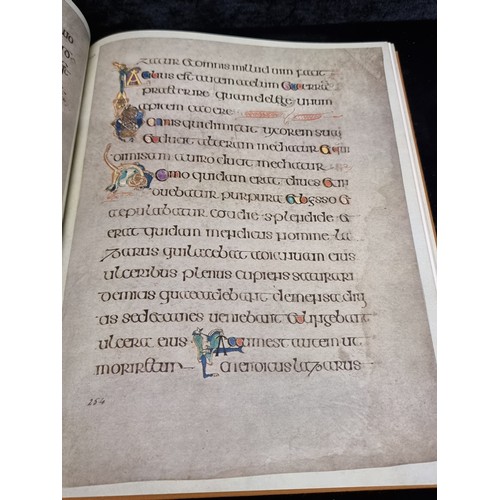 zatur et omnis in illud uim facit
Facilius est autem caelum et terra
praeterire quam de lege unum
apicem cadere
Omnis qui dimitit uxorem suam
et ducat alteram mechatur et
dimisam a uiro ducit mechatur
Homo quidam erat diues et in
duebatur purpura et bysso et
aepulabatur cotidie splendide et
erat quidam mendicus nomine la
zarus qui iacebat ad ianuam eius
ulceribus plenus cupiens saturari
de micis quae cadebant de mensa
sed et canes ueniebant et lingebant
ulcera eius Factum est autem ut
mendicus lazarus
254